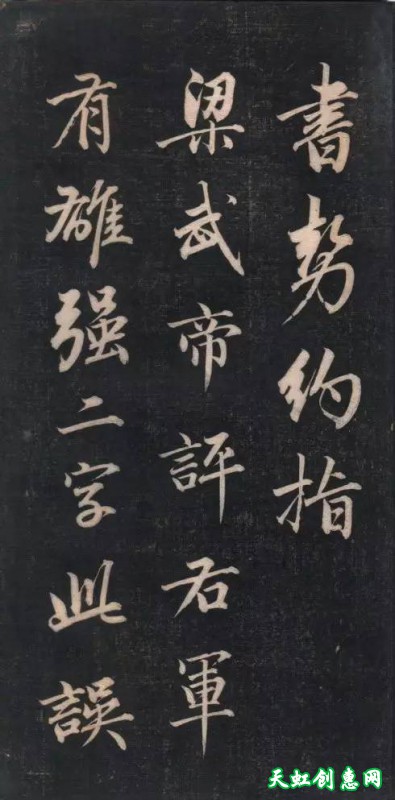 書勢約指
梁武帝評右軍
有雄强二字此誤
天虹创惠网